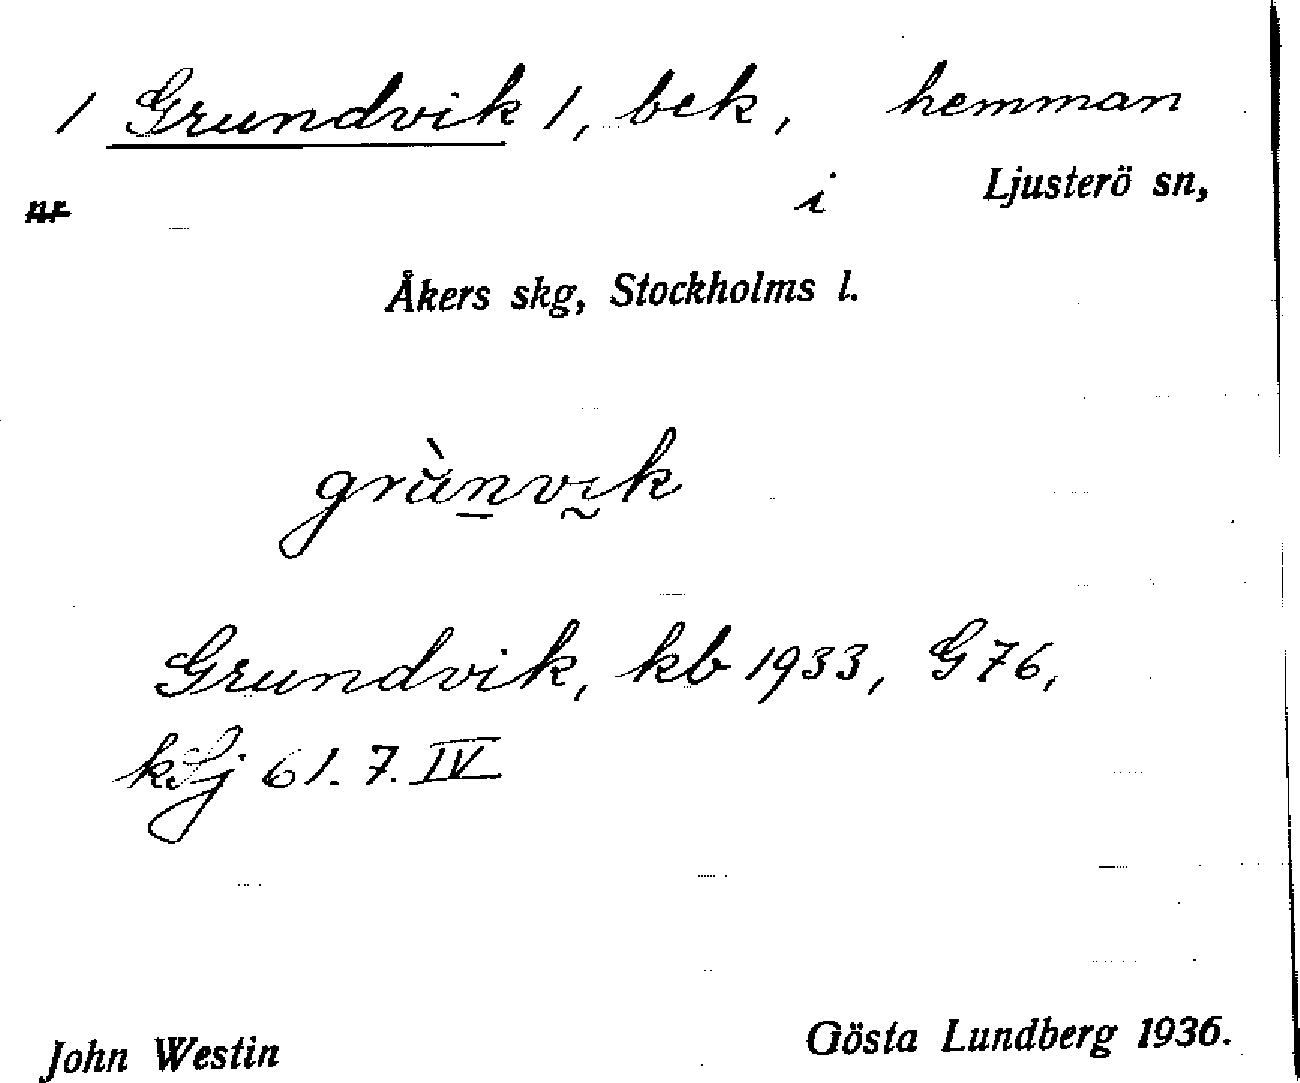 / Grundvik /, bek, hemman
nr i Ljusterö sn,
Åkers skg, Stockholms l.
grùnvik
Grundvik, kb 1933, G 76,
kLj 61. 7. IV
John Westin Gösta Lundberg 1936.